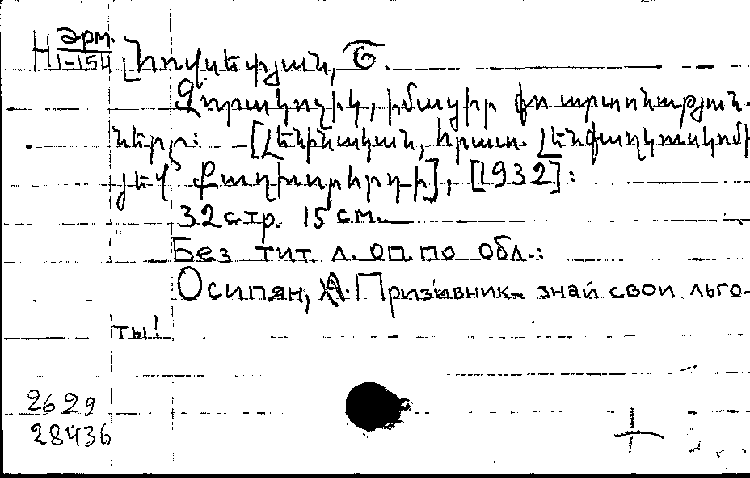 Н Эрм. 1-154 Հովսեփյան, Ծ.
Զորակոչիկ, իմացիր քո արտոնություն-
ները: [Լենինական, հրատ. Լենքաղկոմի
յեվ քաղխորհրդ-ի], [1932]:
32 стр. 15 см.
Без тит. л. оп. по обл.:
Осипян, А. Призывник знай свои льго-
ты!
2629
28436